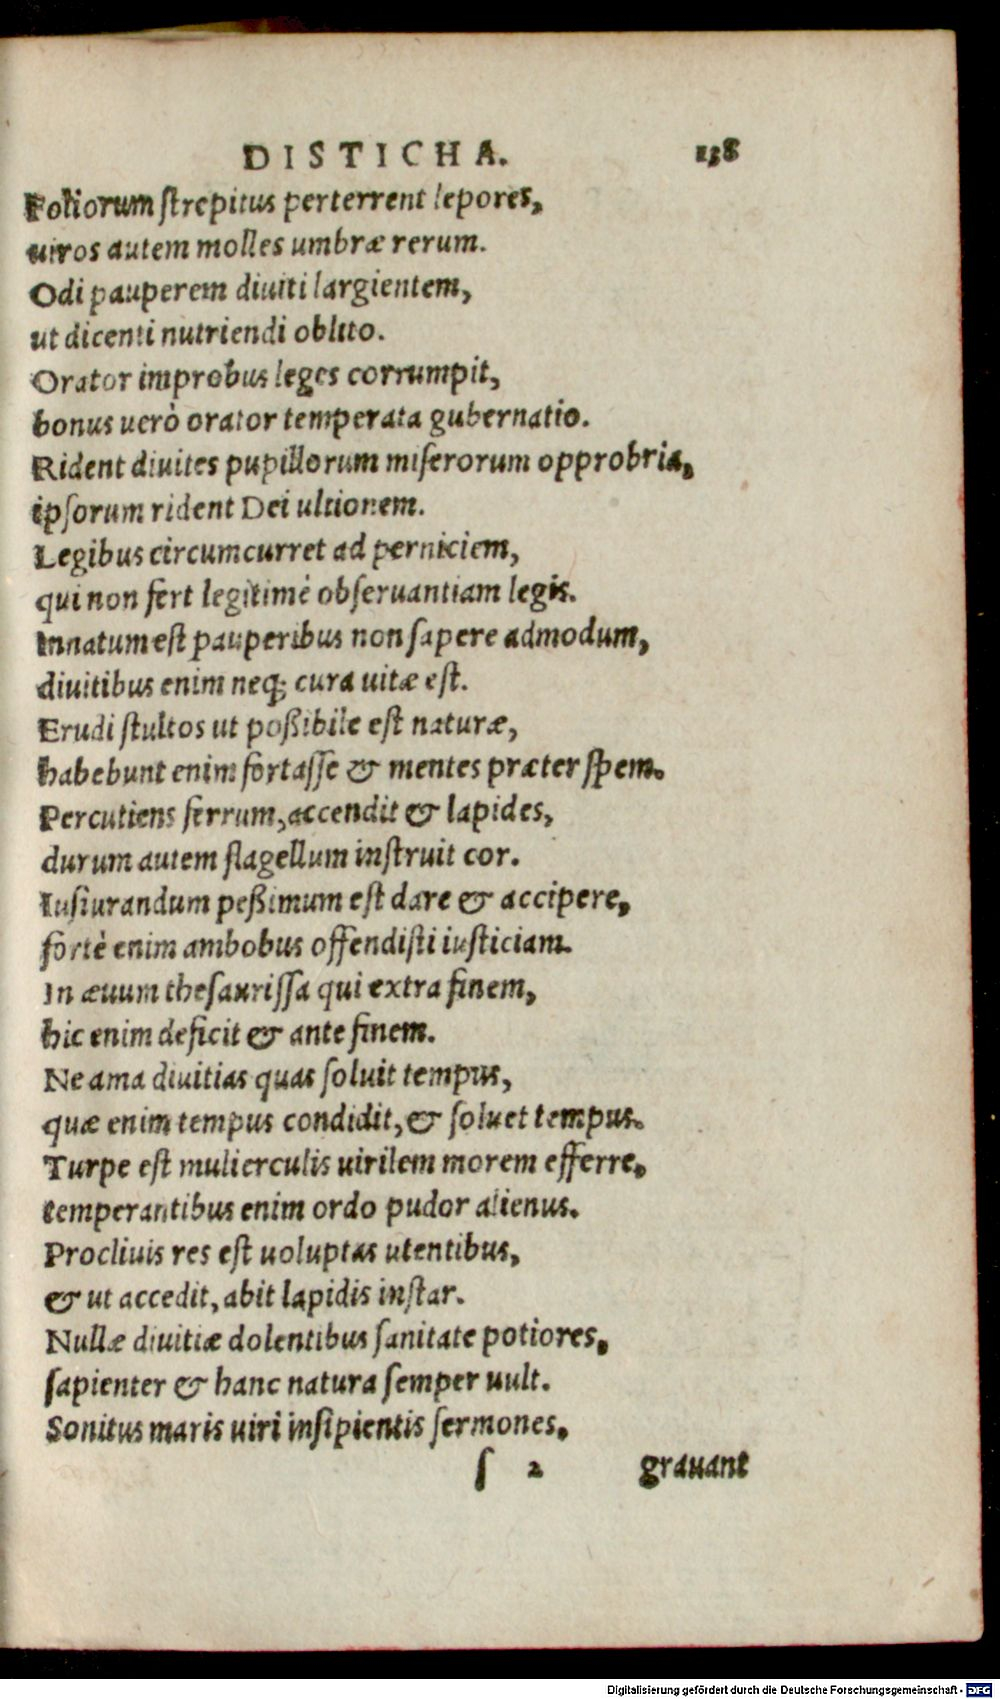 DISTICHA. 138
Foliorum ſtrepitus perterrent lepores,
uiros autem molles umbræ rerum.
Odi pauperem diuiti largientem,
ut dicenti nutriendi oblito.
Orator improbus leges corrumpit,
bonus uerò orator temperata gubernatio.
Rident diuites pupillorum miſerorum opprobria,
ipſorum rident Dei ultionem.
Legibus circumcurret ad perniciem,
qui non fert legitimè obſeruantiam legis.
Innatum eſt pauperibus non ſapere admodum,
diuitibus enim neq; cura uitæ eſt.
Erudi ſtultos ut poßibile eſt naturæ,
habebunt enim fortaſſe & mentes præter ſpem.
Percutiens ferrum, accendit & lapides,
durum autem flagellum inſtruit cor.
Iuſiurandum peßimum eſt dare & accipere,
fortè enim ambobus offendiſti iuſticiam.
In æuum theſauriſſa qui extra finem,
hic enim deficit & ante finem.
Ne ama diuitias quas ſoluit tempus,
quæ enim tempus condidit, & ſoluet tempus.
Turpe eſt mulierculis uirilem morem efferre,
temperantibus enim ordo pudor alienus.
Procliuis res eſt uoluptas utentibus,
& ut accedit, abit lapidis inſtar.
Nullæ diuitiæ dolentibus ſanitate potiores,
ſapienter & hanc natura ſemper uult.
Sonitus maris uiri inſipientis ſermones,
ſ 2 grauant
Digitalisierung gefördert durch die Deutsche Forschungsgemeinschaft - DFG